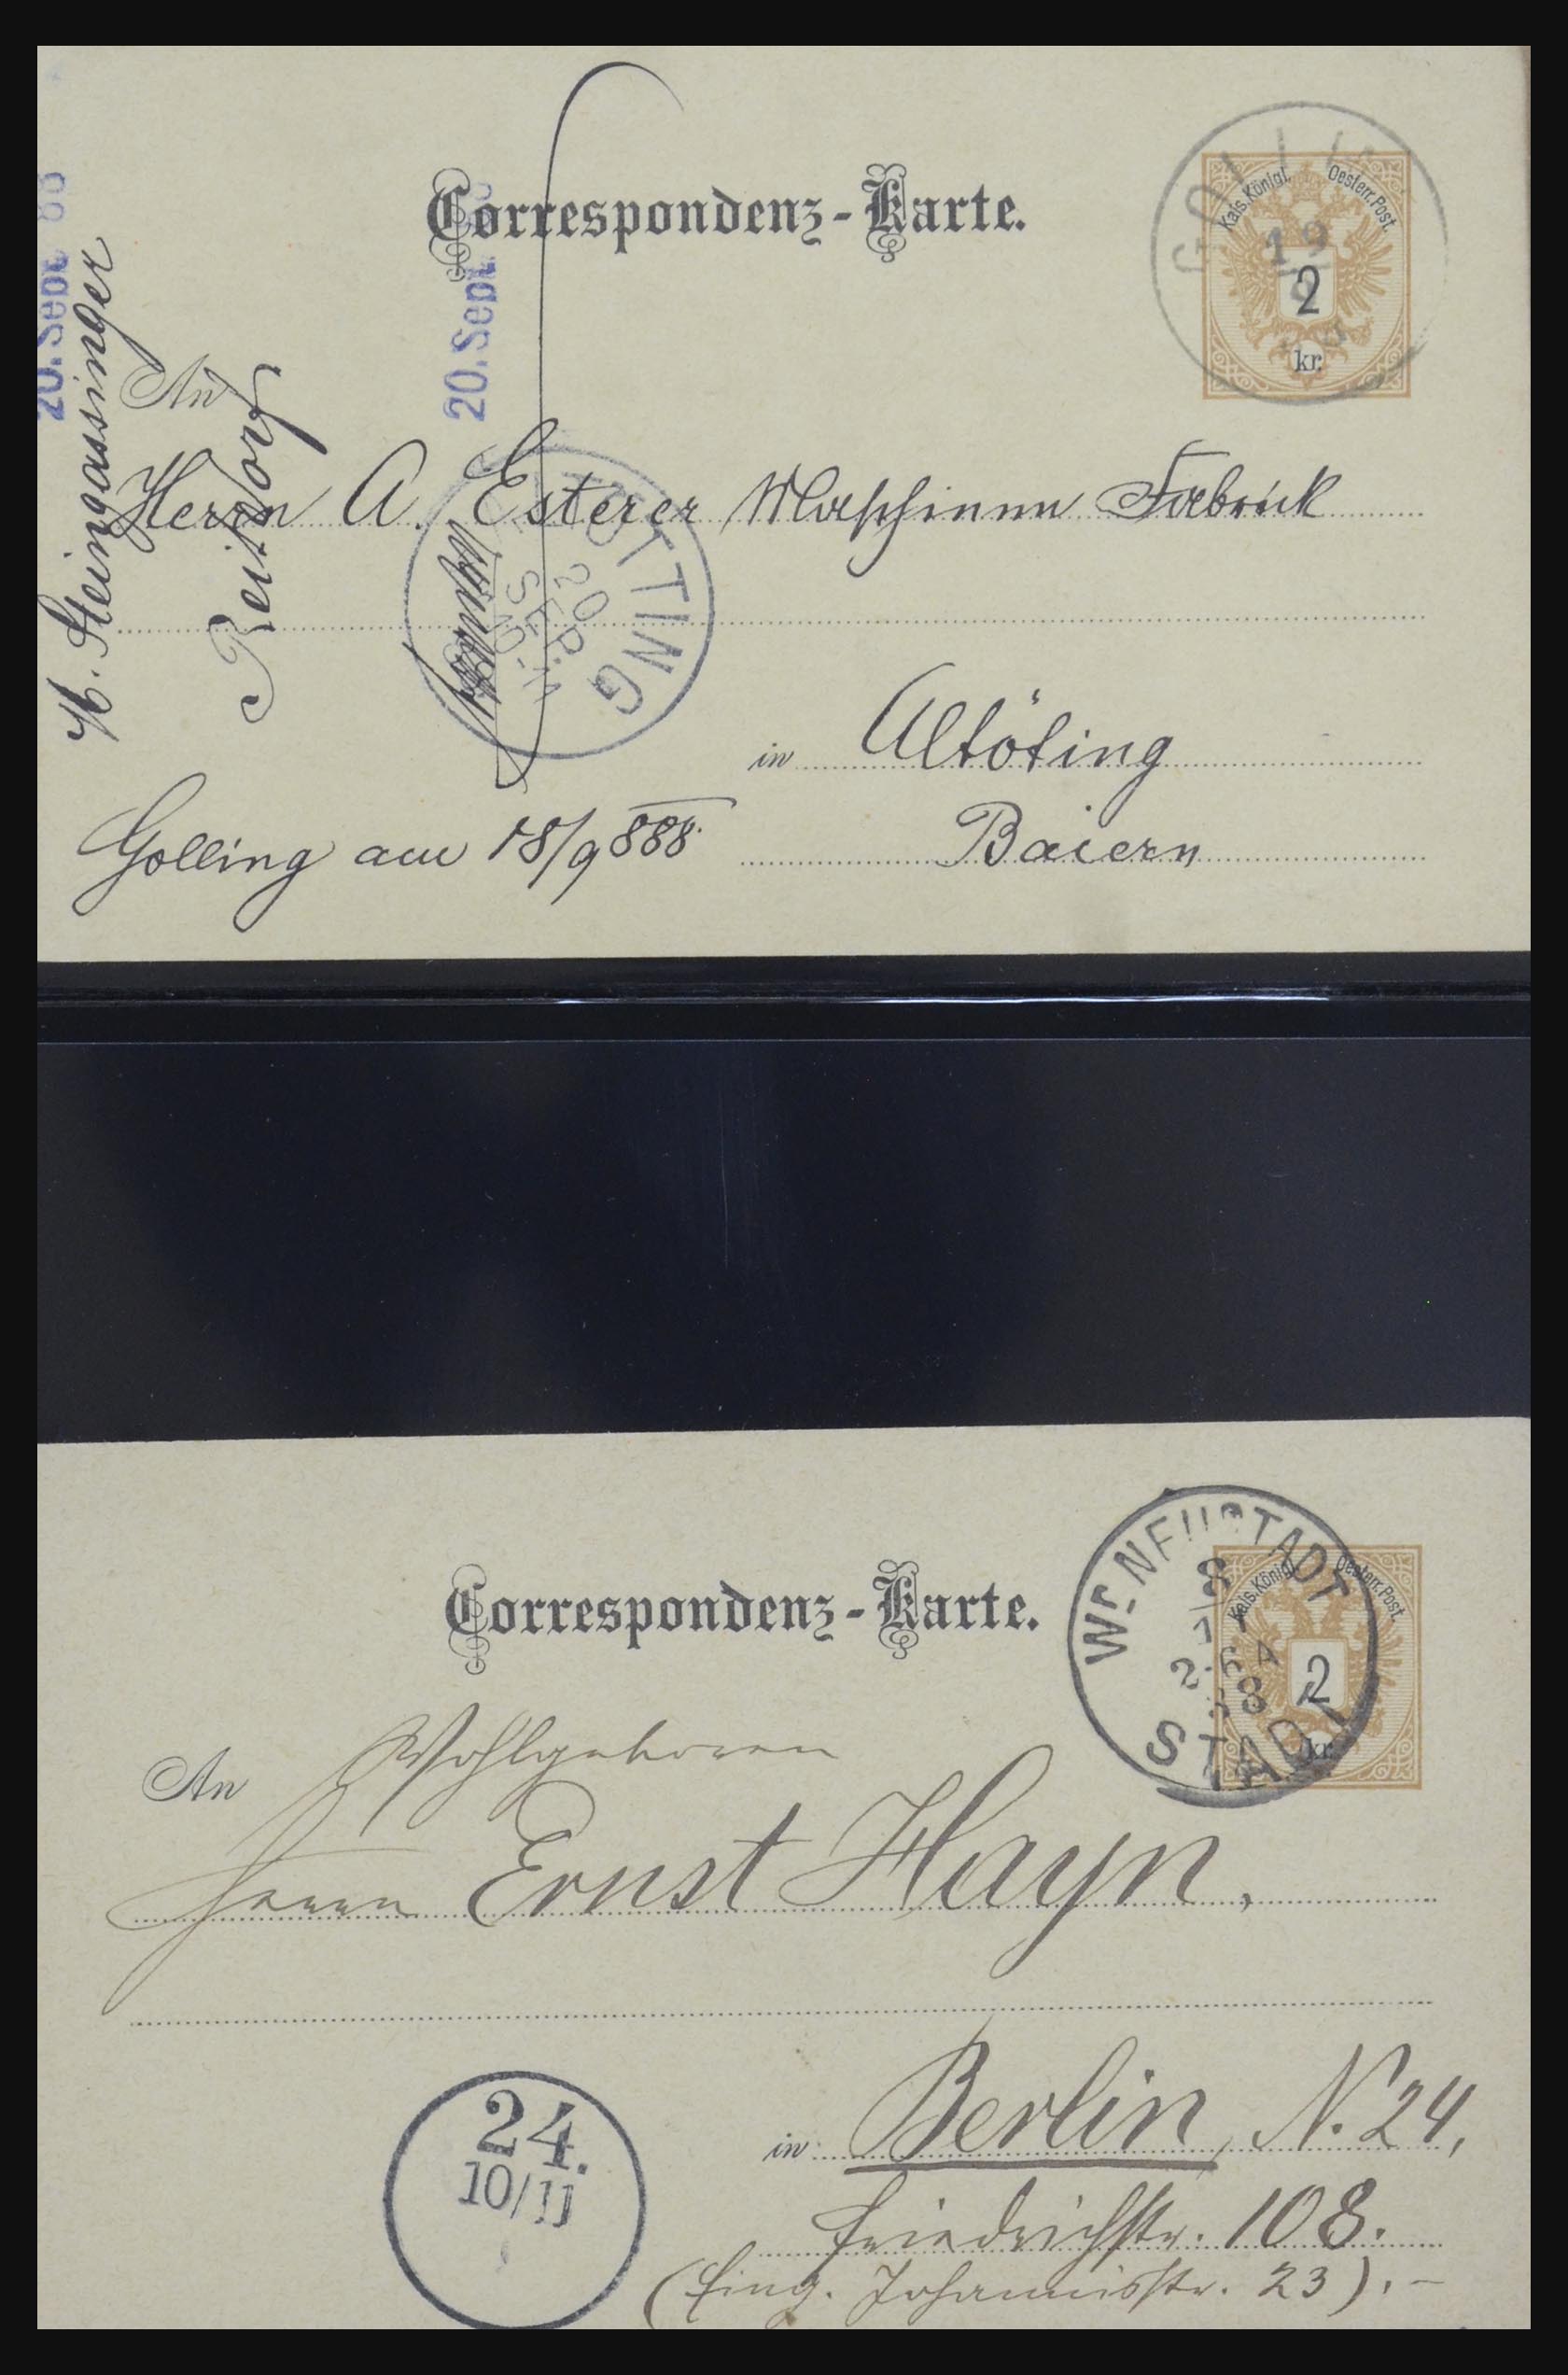 Correspondenz-Karte.
Kais. Königl. Oesterr. Post.
2
kr.
19
20. Sept. 88
20. Sept.
H. Steingassinger
Reitdorf
An
Herrn A. Esterer Maschinen Fabrick
ÖTTING
20
SEP.
in Altöting
Baiern
Golling am 18/9 888.
Correspondenz-Karte.
Kais. Königl. Oesterr. Post.
2
kr.
WR NEUSTADT
STADT
An Wohlgeboren
Herrn Ernst Hayn,
24.
10/11
in Berlin, N. 24,
Friedrichstr. 108.
(Eing. Johannisstr. 23).-